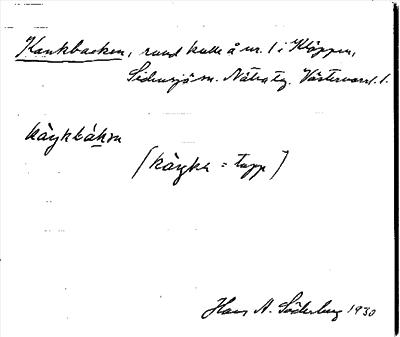 Kankbacken, rund kulle å nr. 1 i Kläppen,
Sidensjö sn. Nätra tg. Västernorrl. l.
kàŋkbákɷn
(kàŋka = tapp)
Hans A. Söderberg 1930